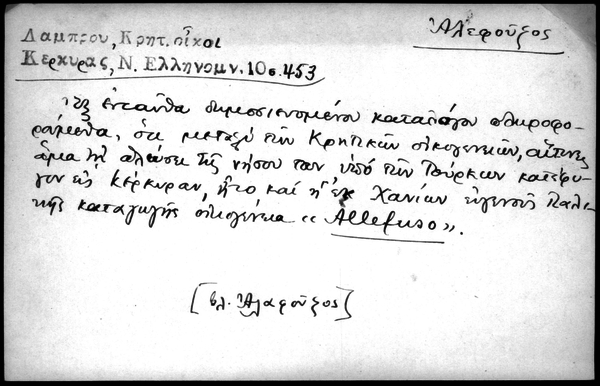 Ἀλεφοῦζος
Λαμπρου, Κρητ. οἶκοι
Κερκυρας, Ν. Ελληνομν. 10 σ. 453
Ἐκ τοῦ ἐνταῦθα δημοσιευομένου καταλόγου πληροφο-
ρούμεθα, ὅτι μεταξὺ τῶν Κρητικῶν οἰκογενειῶν, αἵτινες
ἅμα τῇ ἁλώσει τῆς νήσου των ὑπὸ τῶν Τούρκων κατέφυ-
γον εἰς Κέρκυραν, ἦτο καὶ ἡ ἐκ Χανίων εὐγενοῦς Ἰταλι-
κῆς καταγωγῆς οἰκογένεια «Allefuso».
[βλ. Ἀλαφοῦζος]